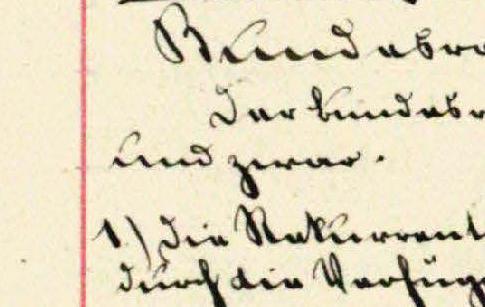 Bundesra
Der Bundesr
und zwar.
1.) Die Rekurrent
durch die Verfüg